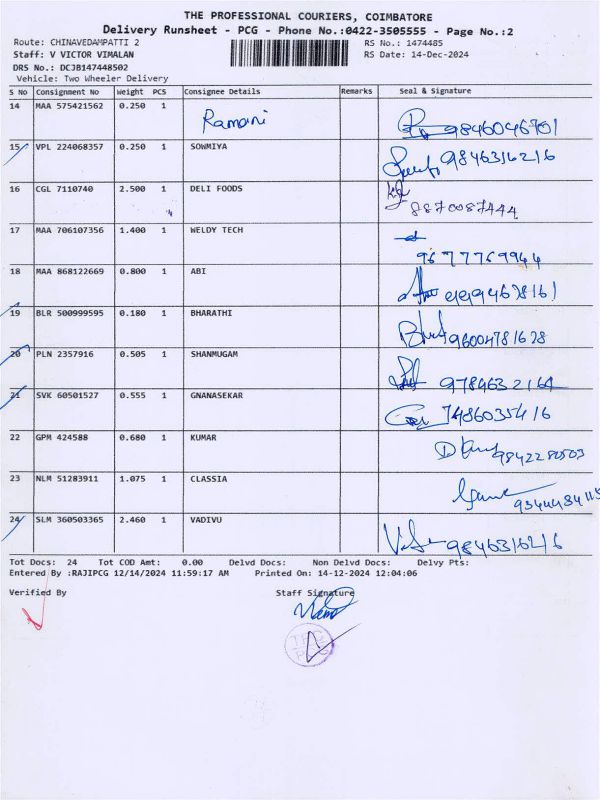 THE PROFESSIONAL COURIERS, COIMBATORE
Delivery Runsheet - PCG - Phone No.:0422-3505555 - Page No.:2
Route: CHINAVEDAMPATTI 2 RS No.: 1474485
Staff: V VICTOR VIMALAN RS Date: 14-Dec-2024
DRS No.: DCJB147448502
Vehicle: Two Wheeler Delivery
S No Consignment No Weight PCS Consignee Details Remarks Seal & Signature
14 MAA 575421562 0.250 1 Ramani 9846046701
15 VPL 224068357 0.250 1 SOWMIYA 9846316216
16 CGL 7110740 2.500 1 DELI FOODS 8870087444
17 MAA 706107356 1.400 1 WELDY TECH 9677769944
18 MAA 868122669 0.800 1 ABI 9994678161
19 BLR 500999595 0.180 1 BHARATHI 96004781678
20 PLN 2357916 0.505 1 SHANMUGAM 9784632164
21 SVK 60501527 0.555 1 GNANASEKAR 7486035416
22 GPM 424588 0.680 1 KUMAR
23 NLM 51283911 1.075 1 CLASSIA
24 SLM 360503365 2.460 1 VADIVU 9846316216
Tot Docs: 24 Tot COD Amt: 0.00 Delvd Docs: Non Delvd Docs: Delvy Pts:
Entered By :RAJIPCG 12/14/2024 11:59:17 AM Printed On: 14-12-2024 12:04:06
Verified By Staff Signature